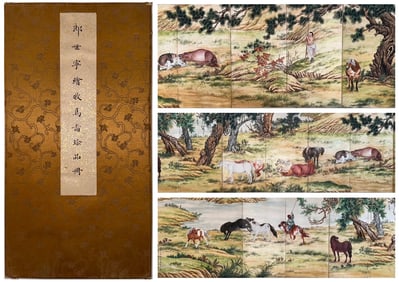 郎世寧繪牧馬圖珍品冊